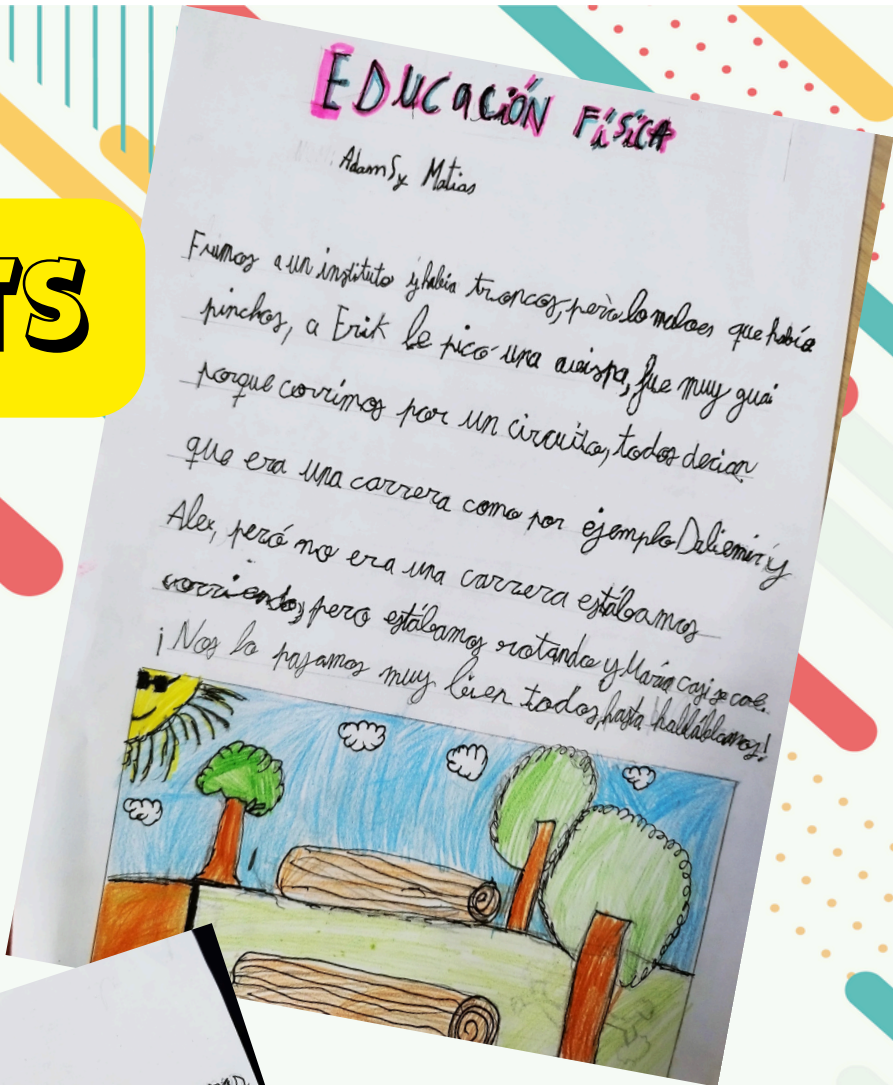 TS
EDUCACIÓN FíSiCA
Adam S y Matias
Fuimos a un instituto y había troncos, però lo malo es que había
pinchos, a Erik le picó una avispa, fue muy guai
porque corrimos por un circuito, todos decian
que era una carrera como por ejemplo Daliemir y
Alex, peró no era una carrera estábamos
corriendo, pero estábamos rotando y María casi se cae.
¡Nos lo pasamos muy bien todos, hasta